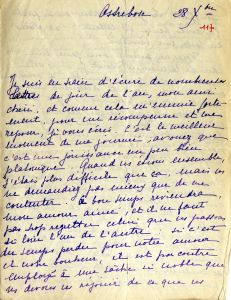 Assebon 28 Xbre
117
Je suis en train d'écrire de nombreuses
lettres de jour de l'an, mon ami
chéri, et comme cela m'ennuie forte-
ment, pour me récompenser et me
reposer, je vous écris. C'est le meilleur
moment de ma journée, avouez que
c'est une jouissance un peu bien
platonique. Quand nous étions ensemble,
c'était plus difficile que ça, mais
ne demandiez pas mieux que de me
contenter. Ce bon temps reviendra,
mon amour aimé, et il ne faut
pas trop regretter celui que nous passons
si loin l'un de l'autre. Si c'est
du temps perdu pour notre amour
et notre bonheur, il est par contre
employé à une tâche si noble que
nous devons nous réjouir de ce que